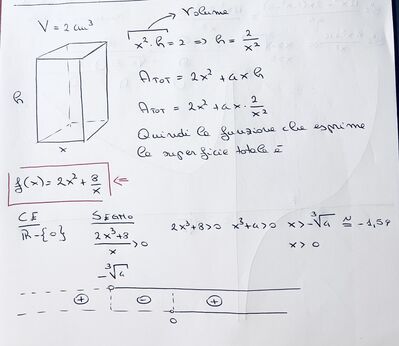 V = 2 cm³
Volume
x²·h = 2 => h = 2/x²
h
x
A_TOT = 2x² + 4x h
A_TOT = 2x² + 4x · 2/x²
Quindi la funzione che esprime
la superficie totale è
f(x) = 2x² + 8/x <=
CE
ℝ-{0}
SEGNO
(2x³+8)/x > 0
2x³+8>0 x³+4>0 x>-³√4 ≅ -1,59
x>0
-³√4
+ - +
0